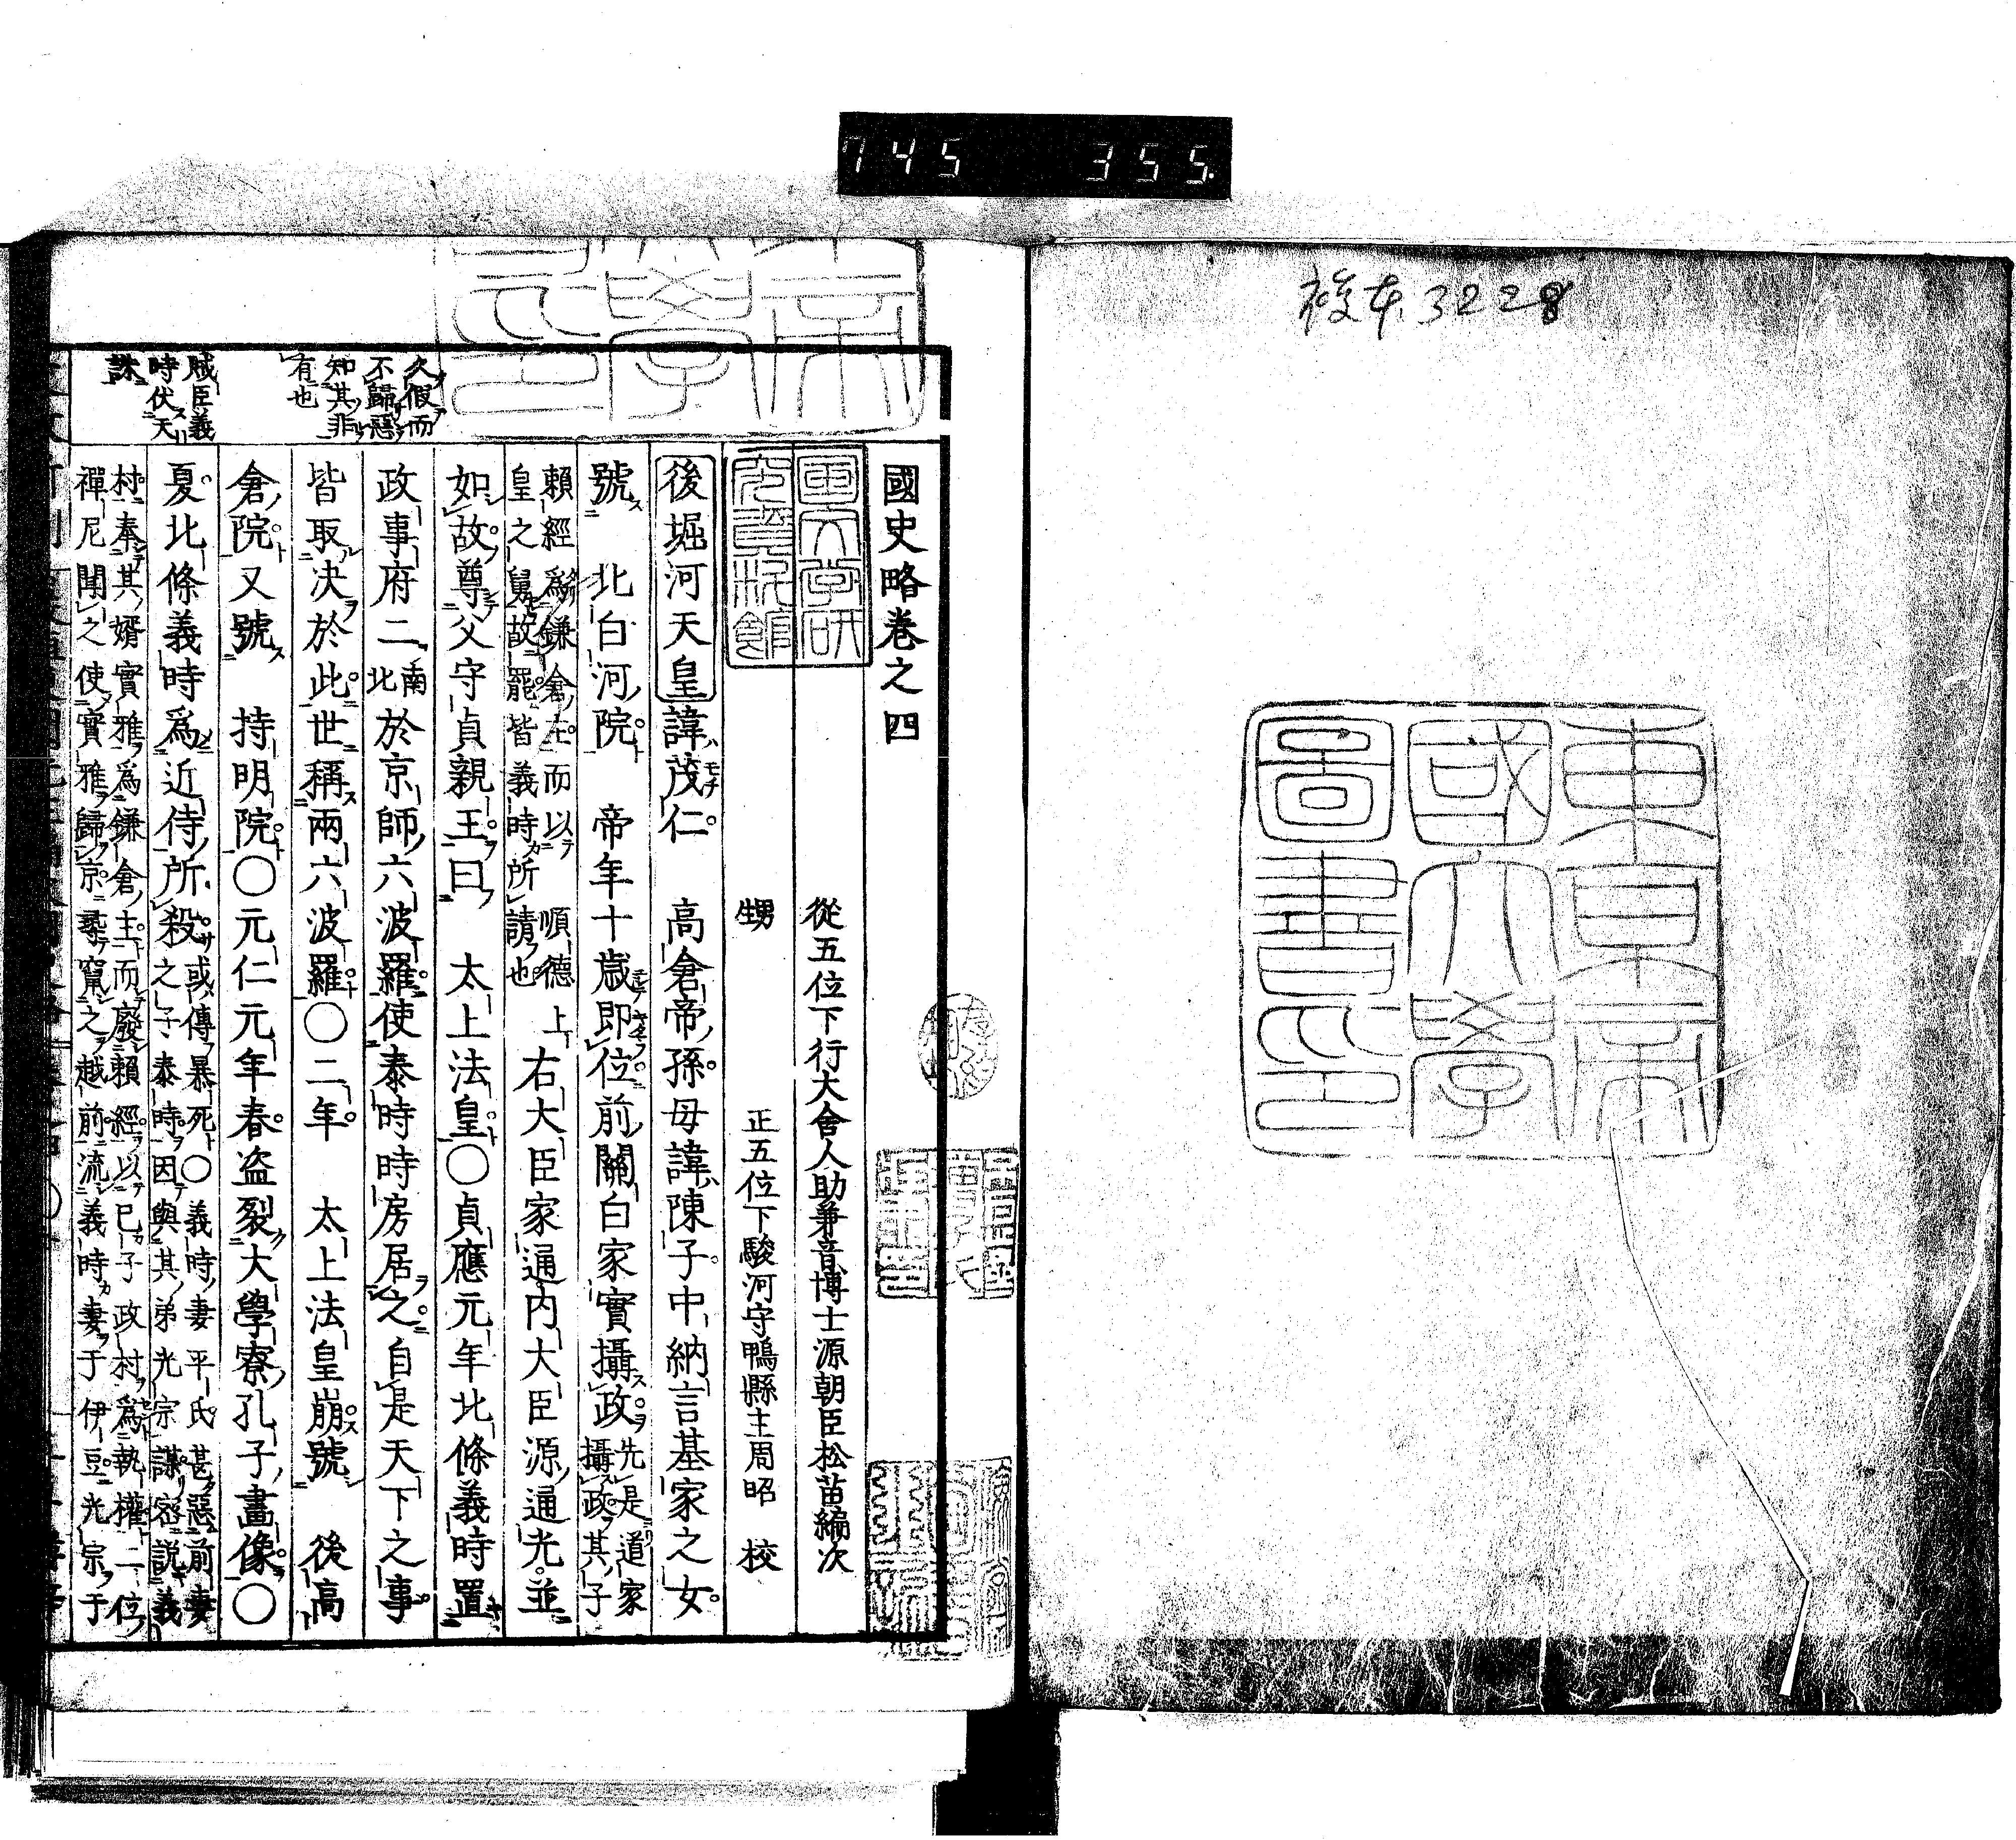 745 355.
複本3228
東京帝
國大學
圖書印
國史略卷之四
從五位下行大舍人助兼音博士源朝臣松苗編次
甥 正五位下駿河守鴨縣主周昭 校
後堀河天皇諱茂仁 高倉帝孫母諱陳子中納言基家之女
號 北白河院 帝年十歲即位前關白家實攝政先是道家攝政其子
賴經爲鎌倉主而以 順德上皇之舅故罷皆義時所請也 右大臣家通内大臣源通光並
如故尊父守貞親王曰 太上法皇○貞應元年北條義時置
政事府二南北於京師六波羅使泰時時房居之自是天下之事
皆取決於此世稱兩六波羅○二年 太上法皇崩號 後高
倉院又號 持明院○元仁元年春盗裂大學寮孔子畫像○
夏北條義時爲近侍所殺或傳暴死○義時妻平氏甚惡前妻之子泰時因與其弟光宗謀密説義
村奉其婿實雅爲鎌倉主而廢賴經以己子政村爲執權二位禪尼聞之使實雅歸京尋竄之越前流義時妻于伊豆光宗于
久假而
不歸惡
知其非
有也
賊臣義
時伏天
誅